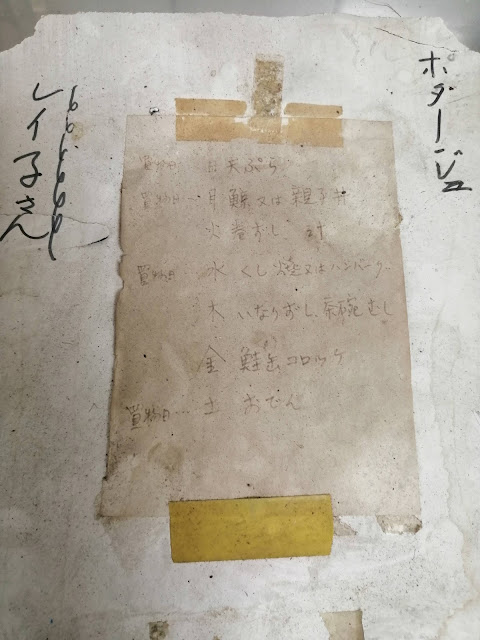 ポタージュ
買物日 日 天ぷら
買物日… 月 鯨又は親子丼
火 巻ずし
買物日 水 くし焼又はハンバーグ
木 いなりずし、茶碗むし
金 鮭缶コロッケ
買物日… 土 おでん
レイ子さん